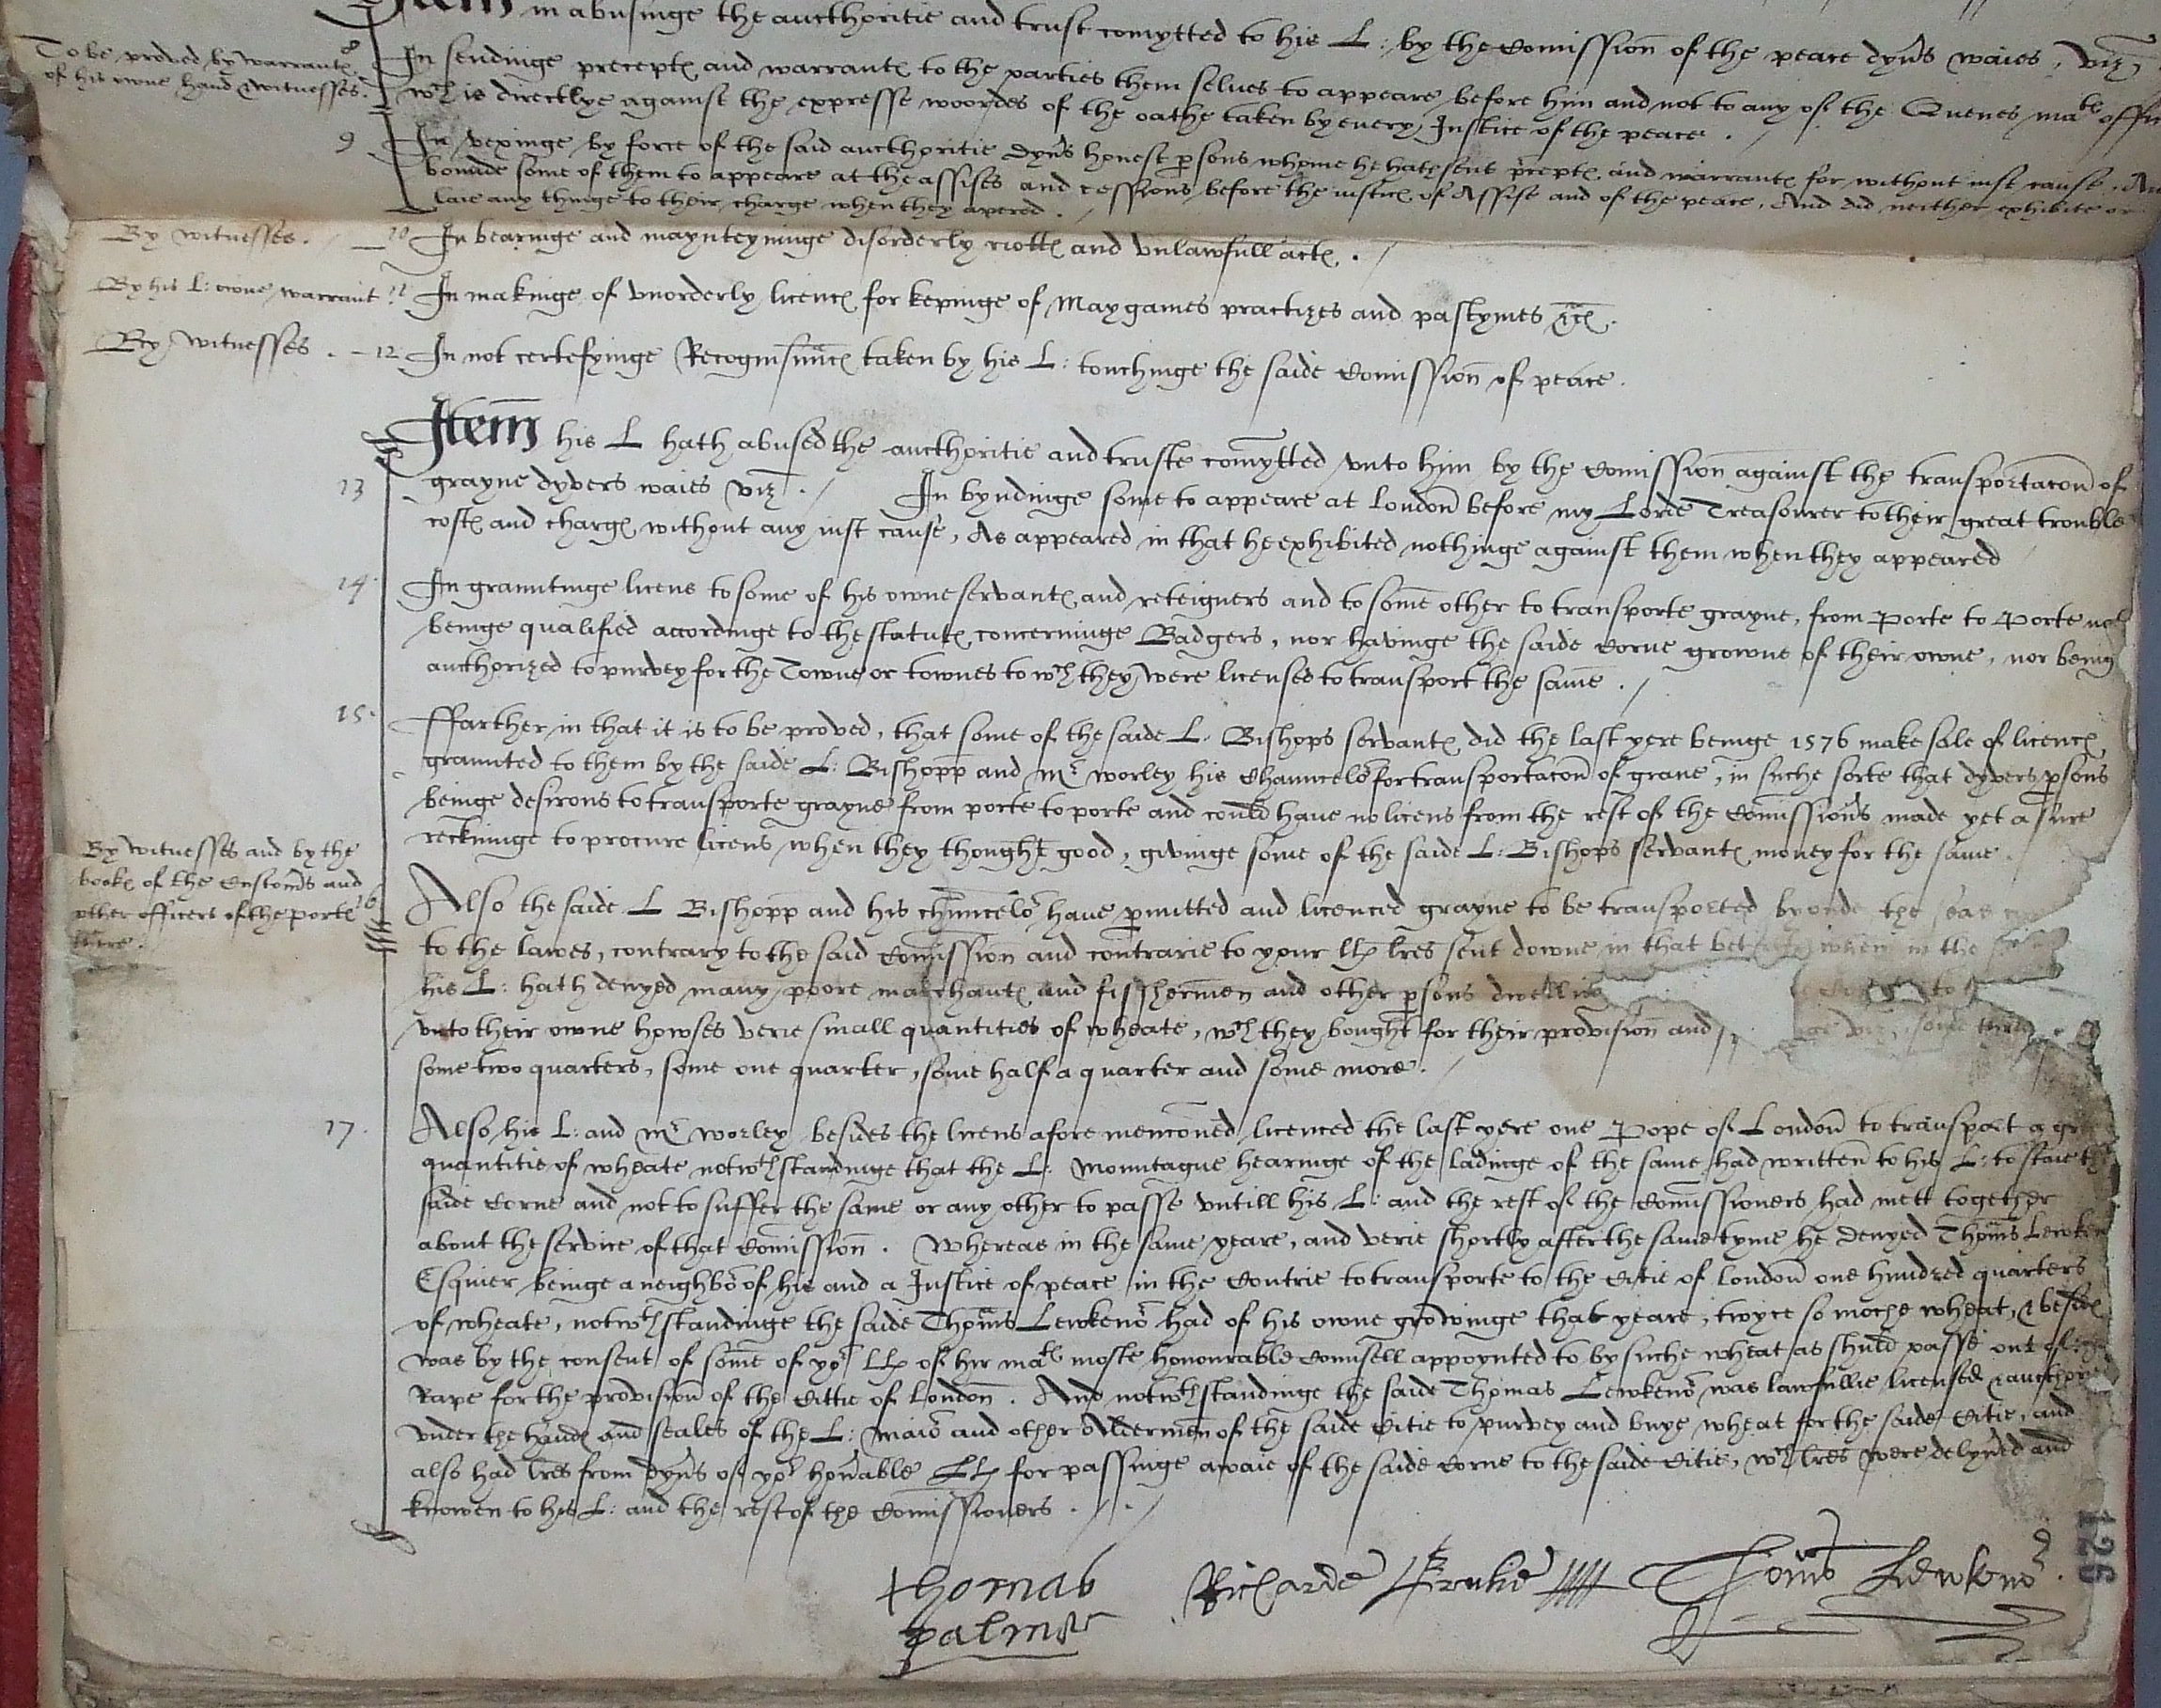 Item in abusinge the aucthoritie and trust comytted to his L: by the Comission of the peace dyvers waies, viz,
To be proved by warrantes of his owne hand & witnesses.
8 In sendinge preceptes and warrantes to the parties them selues to appeare before hym and not to any of the Quenes matis offic
wch is directlye against the expresse woordes of the oathe taken by euery Justice of the peace.
9 In vexinge by force of the said aucthoritie dyvers honest psons whome he hath sent precptes and warrantes for without iust cause, An
bounde some of them to appeare at the assises and cessions before the iustices of Assise and of the peace, And did neither exhibite or
laie any thinge to their charge when they apered.
By witnesses. 10 In bearinge and maynteyninge disorderly riottes and vnlawfull actes.
By his L: owne warrant 11 In makinge of vnorderly licences for kepinge of Maygames practizes and pastymes &c.
By witnesses. 12 In not certefyinge Recognisaunces taken by his L: touchinge the saide Comission of peace.
Item his L hath abused the aucthoritie and truste comytted vnto hym by the Comission against the transportacon of
13 grayne dyvers waies viz. In byndinge some to appeare at London before my Lorde Treasourer to their great trouble
costes and charges without any iust cause, As appeared in that he exhibited nothinge against them when they appeared
14 In grauntinge licens to some of his owne servantes and reteigners and to some other to transporte grayne, from Porte to Porte not
beinge qualified accordinge to the statutes concerninge Badgers, nor havinge the saide Corne growne of their owne, nor being
aucthorized to purvey for the Towne or townes to wch they were licensed to transport the same.
15. ffarther in that it is to be proved, that some of the saide L. Bishops servantes did the last yere beinge 1576 make sale of licences
graunted to them by the saide L: Bishopp and Mr Worley his Chauncelor for transportacon of grane, in suche sorte that dyvers psons
beinge desirous to transporte grayne from porte to porte and could haue no licens from the rest of the Comissioners made yet a sure
reckninge to procure licens when they thought good, givinge some of the saide L: Bishops servantes money for the same.
By witnesses and by the
bookes of the Customers and
other officers of the portes
there.
16 Also the saide L Bishopp and his chauncelor haue pmitted and licenced grayne to be transported byonde the seae
to the lawes, contrary to the said Comission and contrarie to your LLps lres sent downe in that behalf when in the
his L: hath denyed many poore marchantes and fisshermen and other psons dwellin
vnto their owne howses verie small quantities of wheate, wch they bought for their provision and viz, some three
some two quarters, some one quarter, some half a quarter and some more.
17. Also his L: and Mr Worley besides the licens afore mencioned licenced the last yere one Pope of London to transport a gre
quantitie of wheate notwthstandinge that the L: Mountague hearinge of the ladinge of the same had written to his L: to staie the
saide Corne and not to suffer the same or any other to passe vntill his L: and the rest of the Comissioners had mett together
about the service of that Comission. Whereas in the same yeare, and verie shortly after the same tyme he denyed Thoms Lewken
Esquier beinge a neighbor of his and a Justice of peace in the Contrie to transporte to the Citie of London one hundred quarters
of wheate, notwthstandinge the saide Thoms Lewkenor had of his owne growinge that yeare, twyce so moche wheat, & besides
was by the consent of some of yor LLps of hir matis moste honourable Counsell appoynted to by suche wheat as shuld passe out of the
Rape for the provision of the Cittie of London. And notwthstandinge the saide Thomas Lewkenor was lawfullie licensed & aucthor
vnder the handes and seales of the L: Maior and other Aldermen of the saide Citie to purvey and buye wheat for the saide Citie, and
also had lres from dyvers of yor honable LLps for passinge awaie of the saide Corne to the saide Citie, wch lres were delyvered and
knowen to his L: and the rest of the Comissioners.
thomas palmer Richarde Ernle Thoms Lewkenor.
126